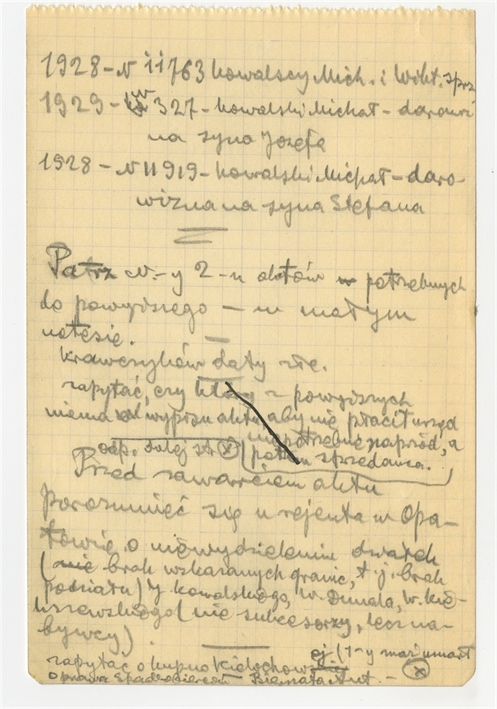 1928 - N 11763 Kowalscy Mich. i Wikt. sprz
1929 - 327 - Kowalski Michał - darowi
na syna Józefa
1928 - N 11919 - Kowalski Michał - daro-
wizna na syna Stefana
Patrz N-y 2-u aktów potrzebnych
do powyższego - w małym
notesie.
Krawczyków daty złe.
zapytać, czy któryś z powyższych
niema wypisu aktu, aby nie płacił urząd
niepotrzebnie naprzód, a
odp. dalej str. ⊗ potem sprzedawca.
Przed zawarciem aktu
porozumieć się u rejenta w Opa-
towie o niewydzieleniu działek
(nie brak wskazanych granic, t.j. brak
podziału) y Kowalskiego, W. Dumala, W. Kie-
liszewskiego (nie sukcesorzy, lecz na-
bywcy).
zapytać o kupno Kidochow ej (1-y mąż umarł
Sprawa Spadkobierców Biernata Ant. - ⊗